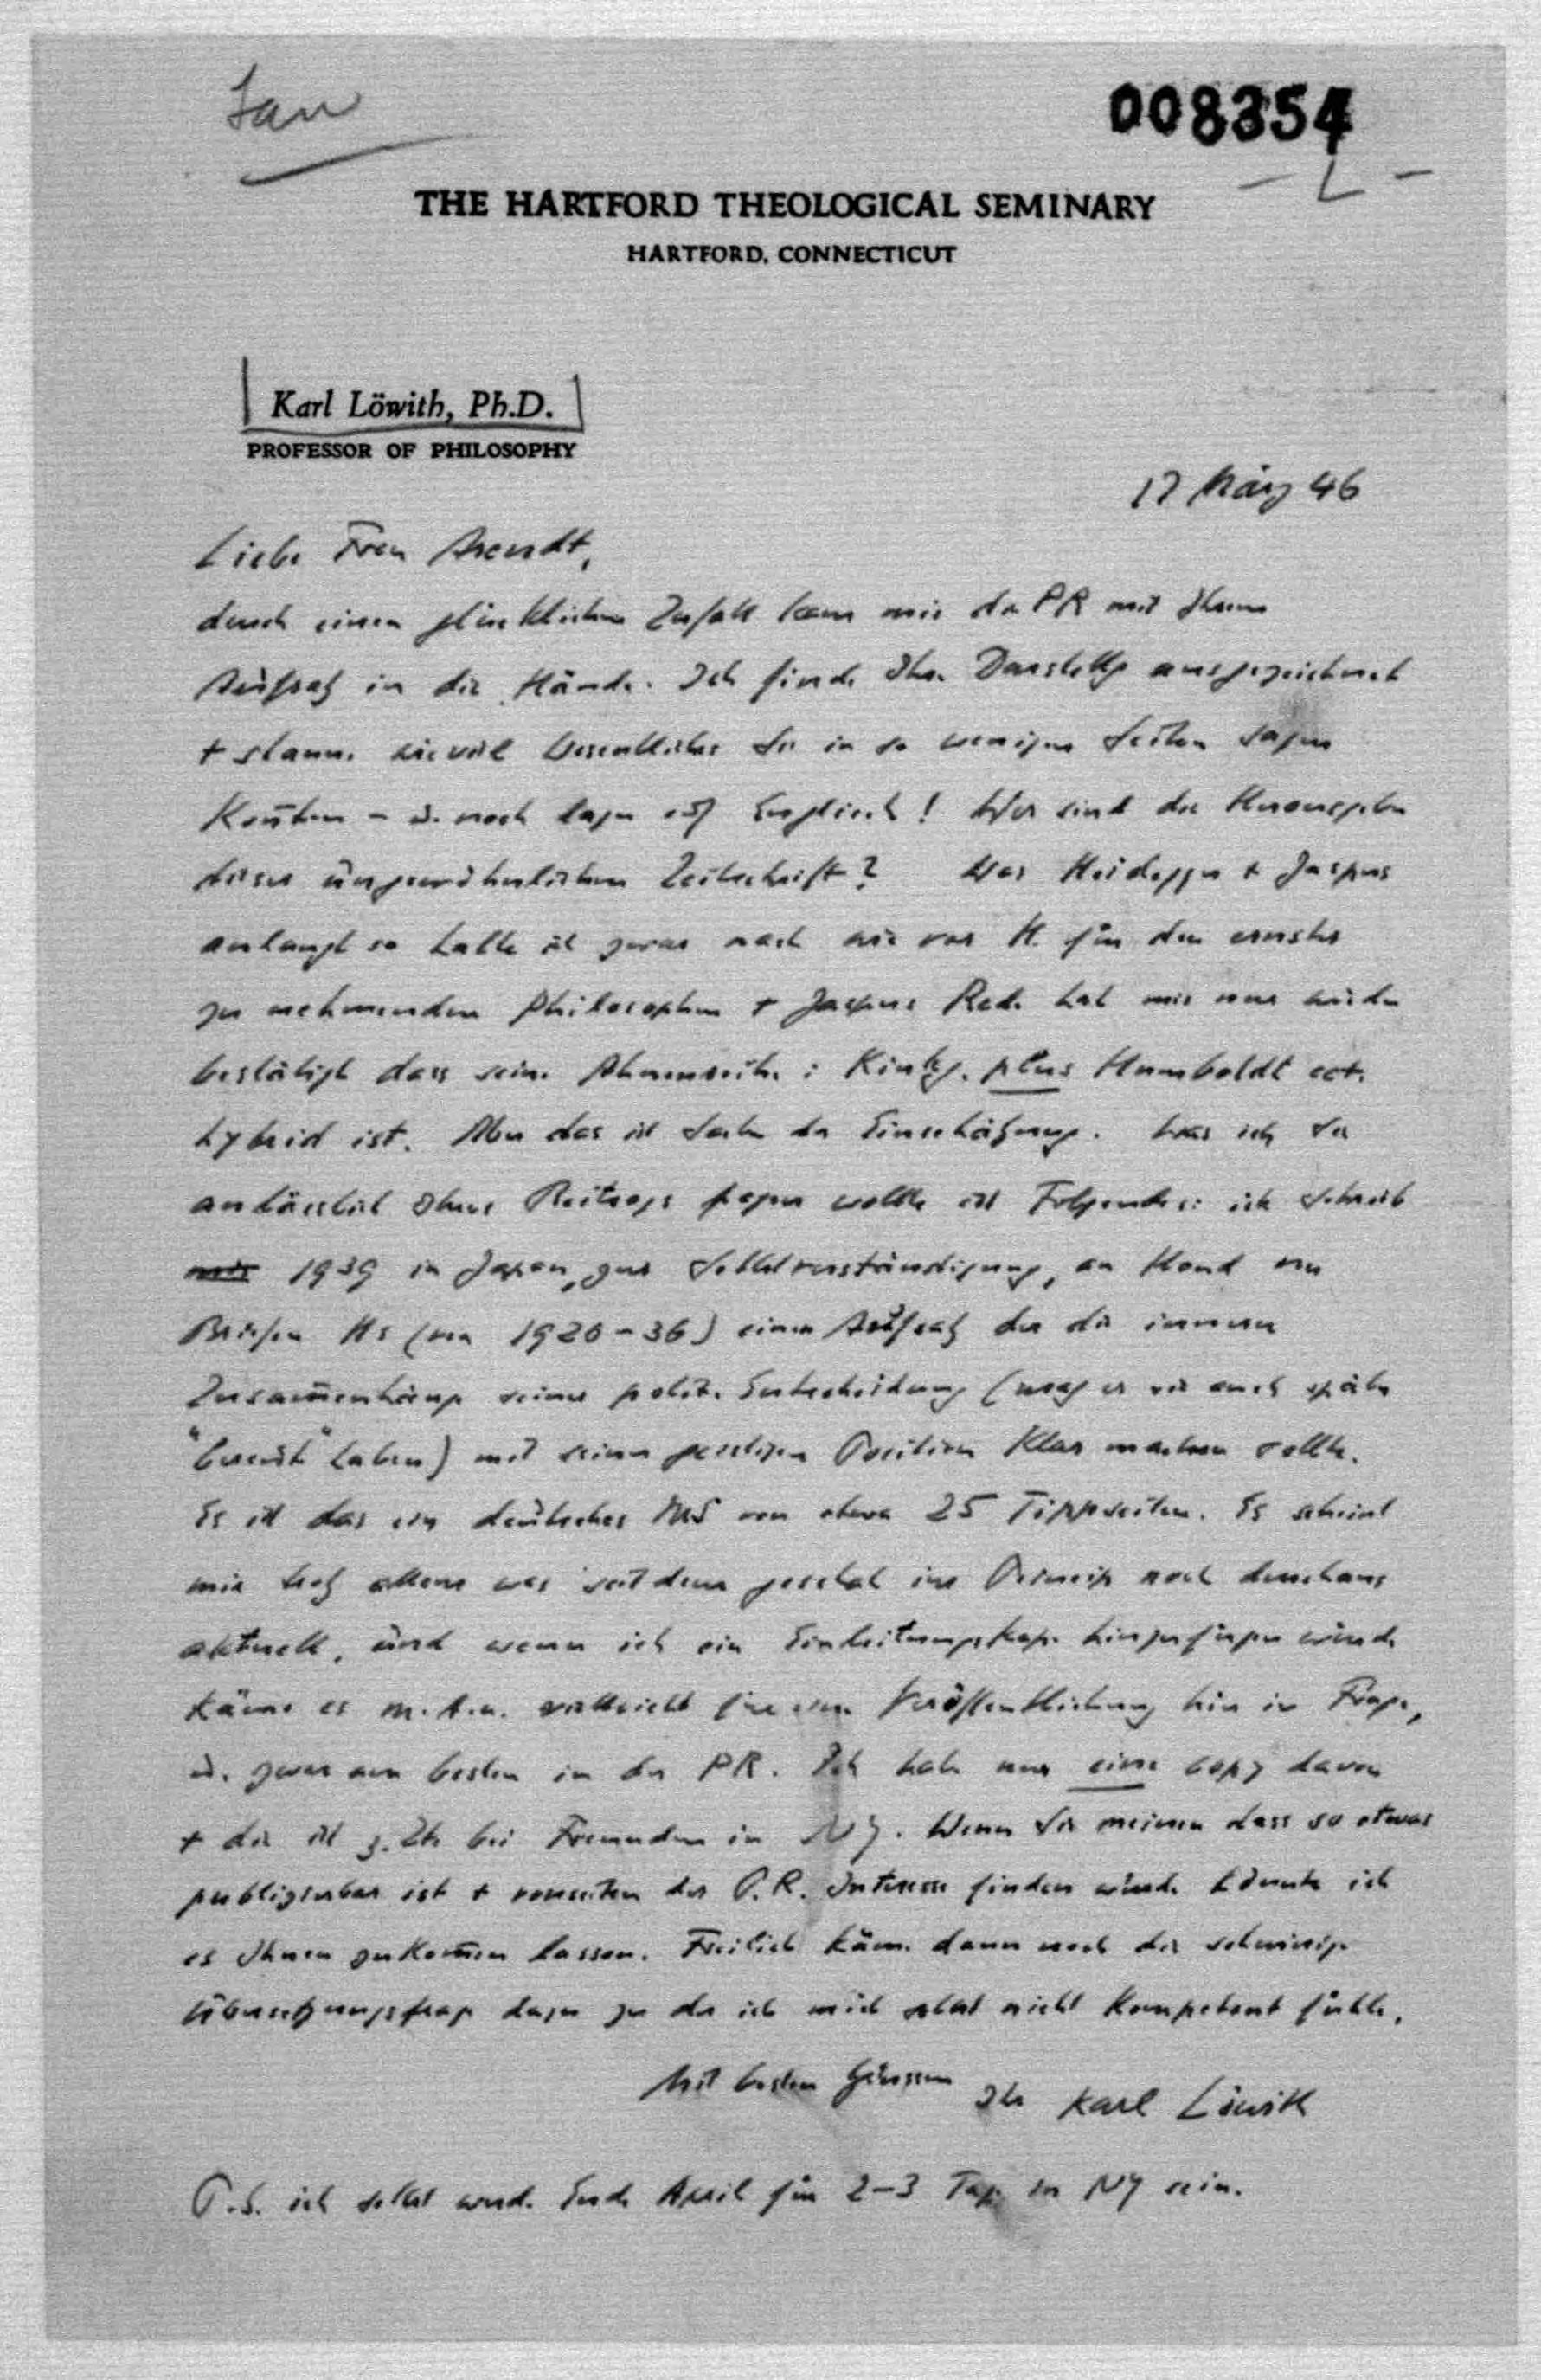 008354
- L -
THE HARTFORD THEOLOGICAL SEMINARY
HARTFORD, CONNECTICUT
Karl Löwith, Ph.D.
PROFESSOR OF PHILOSOPHY
17 März 46
Liebe Frau Arendt,
durch einen glücklichen Zufall kam mir die PR mit Ihrem
Aufsatz in die Hände. Ich finde Ihre Darstellg ausgezeichnet
+ staune wieviel Wesentliches Sie in so wenigen Seiten sagen
konnten - u. noch dazu auf Englisch! Wer sind die Herausgeber
dieser ungewöhnlichen Zeitschrift? Was Heidegger + Jaspers
anlangt so halte ich zwar nach wie vor H. für den ernster
zu nehmenden Philosophen + Jaspers Rede hat mir nur wieder
bestätigt dass seine Ahnenreihe: Kierkg. plus Humboldt ect.
hybrid ist. Aber das ist Sache der Einschätzung. Was ich Sie
anlässlich Ihres Beitrags fragen wollte ist Folgendes: ich schrieb
mir 1939 in Japan, zur Selbstverständigung, an Hand von
Briefen Hs (von 1920-36) einen Aufsatz der die inneren
Zusammenhänge seiner polit. Entscheidung (mag er sie auch später
"bereut" haben) mit seiner geistigen Position klar machen sollte.
Es ist das ein deutsches MS von etwa 25 Tippseiten. Es scheint
mir trotz allem was seitdem geschah im Princip noch durchaus
aktuell, und wenn ich ein Einleitungskap. hinzufügen würde
käme es m.A.n. vielleicht für eine Veröffentlichung hier in Frage,
u. zwar am besten in der PR. Ich habe nur eine copy davon
+ die ist z.Zt. bei Freunden in NY. Wenn Sie meinen dass so etwas
publizierbar ist + vonseiten der P.R. Interesse finden würde könnte ich
es Ihnen zukommen lassen. Freilich käme dann noch die schwierige
Übersetzungsfrage dazu zu der ich mich selbst nicht kompetent fühle.
Mit besten Grüssen Ihr Karl Löwith
P.S. ich selbst werde Ende April für 2-3 Tage in NY sein.